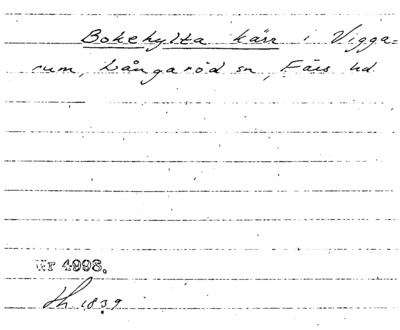 Bokehylta kärr i Vigga=
rum, Långaröd sn, Färs hd
Nr 4998.
Lh 1839